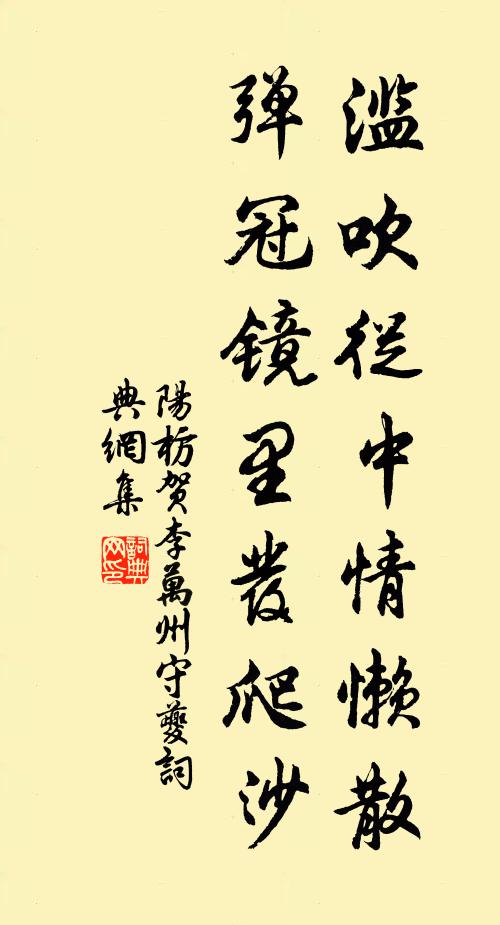 滥吹从中情懒散
弹冠镜里发爬沙
陽枋贺李萬州守夔詞
典網集
詞典网印